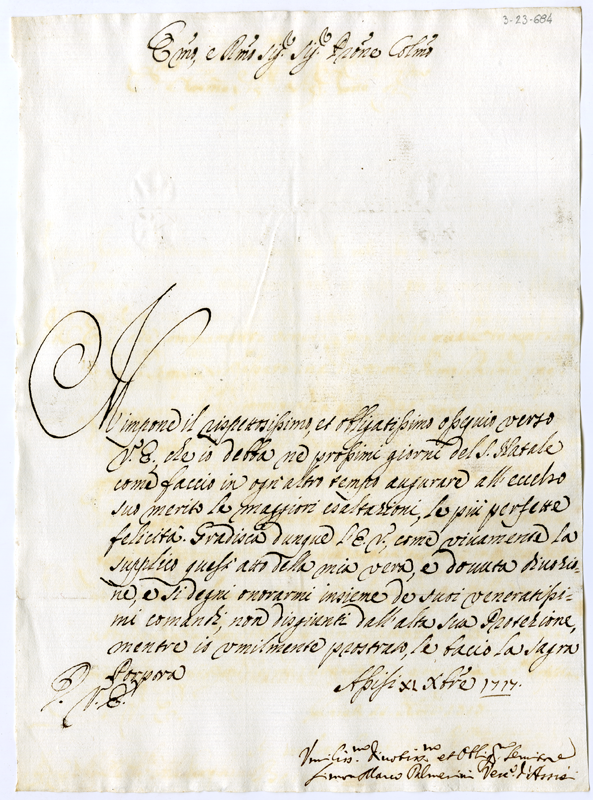 3-23-684
Em̃o, e Rm̃o Sig.r Sig.r Prõne Colm̃o
M'impone il rispettosissimo, et obligatissimo ossequio verso
V.E., che io debba ne prossimi giorni del S. Natale
come faccio in ogn'altro tempo augurare all'eccelso
suo merito le maggiori esaltazioni, le più perfette
felicità. Gradisca dunque l'E.V., come vivamente la
supplico quest'atto della mia vera, e dovuta divozio-
ne, e si degni onorarmi insieme de suoi veneratissi-
mi comandi, non disgiunti dall'alta sua Protezione,
mentre io umilmente prostrato, le bacio la Sagra
Porpora
Assisi XI Xbre 1717.
D. V.E.
Umiliss.mo Divotiss.mo et Oblig.mo Servitore
Marco Palmerini Vesc.o d'Assisi